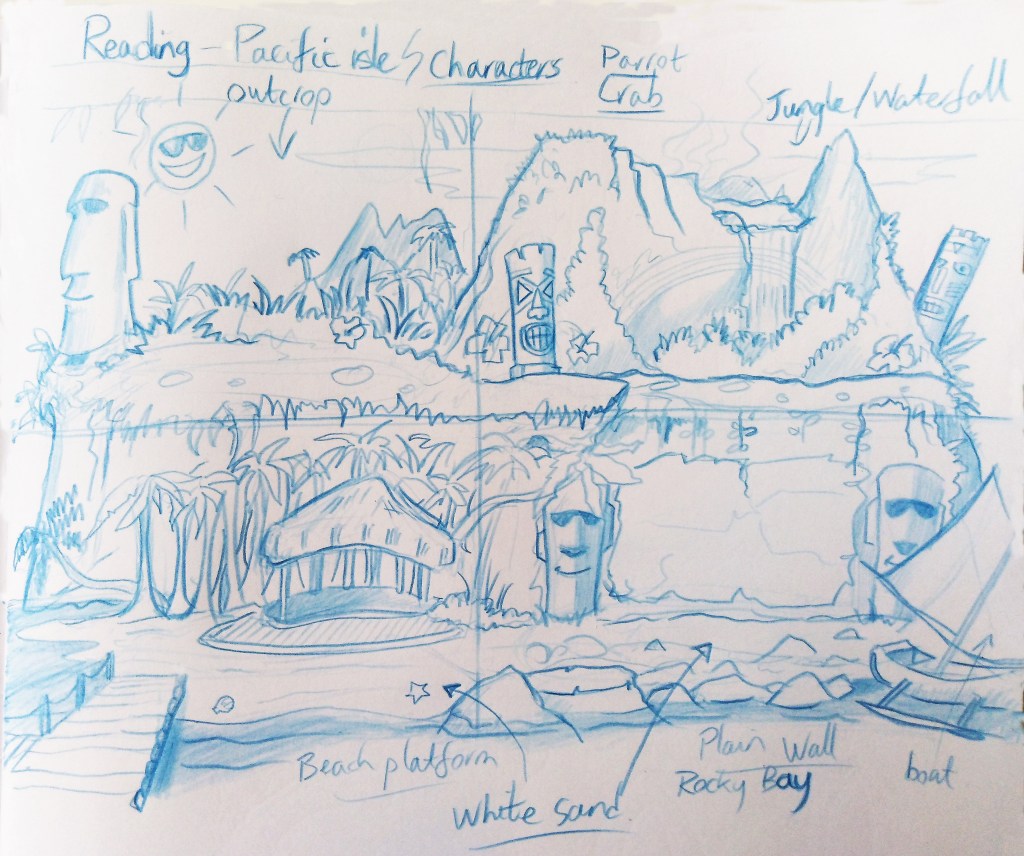 Reading - Pacific isle
outcrop
Characters
Parrot
Crab
Jungle/Waterfall
Beach platform
White Sand.
Plain Wall
Rocky Bay
boat